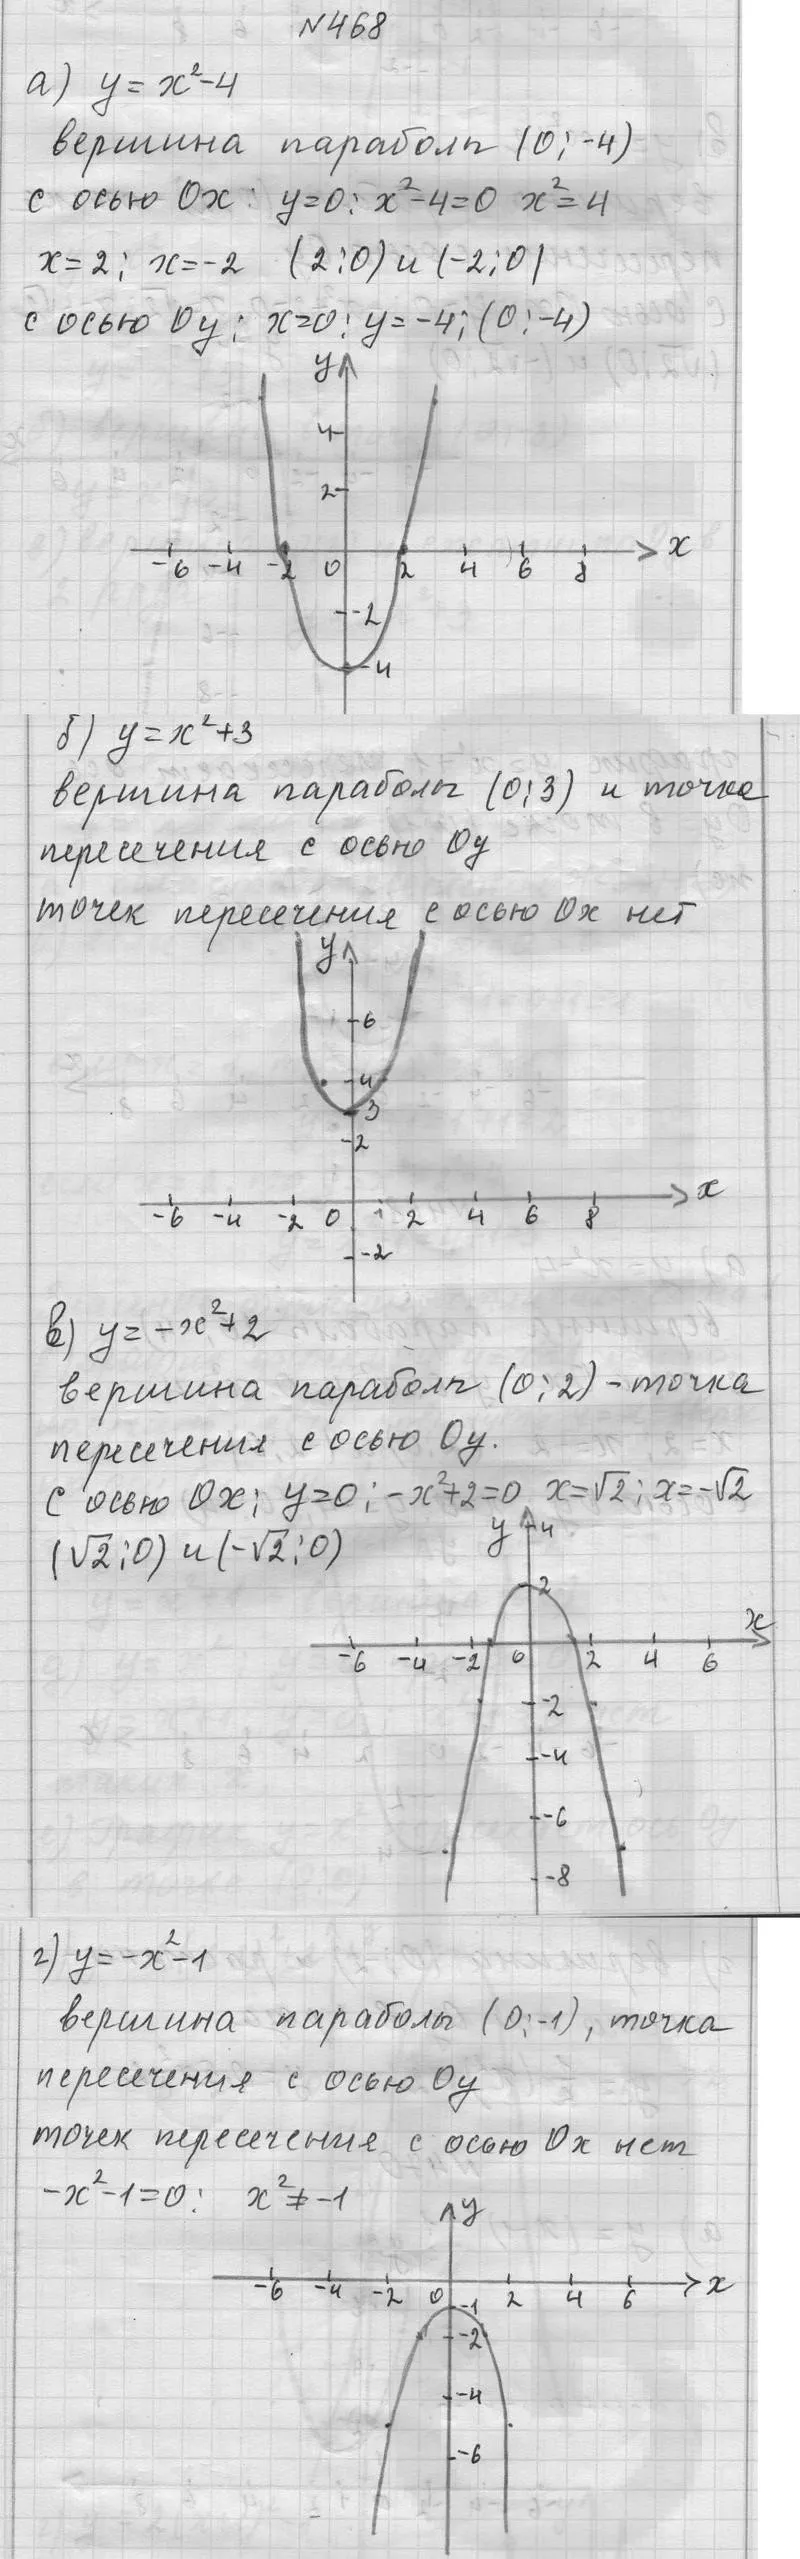 N468
а) y = x²-4
вершина параболы (0; -4)
с осью Ox: y=0; x²-4=0 x²=4
x=2; x=-2 (2;0) и (-2;0)
с осью Oy; x=0; y=-4; (0;-4)
y
4
2
-6 -4 -2 0 2 4 6 8 x
-2
-4
б) y=x²+3
вершина параболы (0;3) и точка
пересечения с осью Oy
точек пересечения с осью Ox нет
y
6
4
3
2
-6 -4 -2 0 1 2 4 6 8 x
-2
в) y=-x²+2
вершина параболы (0; 2) - точка
пересечения с осью Oy.
с осью Ox; y=0; -x²+2=0 x=√2; x=-√2
(√2;0) и (-√2;0)
y 4
2
x
-6 -4 -2 0 2 4 6
-2
-4
-6
-8
г) y=-x²-1
вершина параболы (0;-1), точка
пересечения с осью Oy
точек пересечения с осью Ox нет
-x²-1=0; x²≠-1
y
-6 -4 -2 0 2 4 6 x
-1
-2
-4
-6